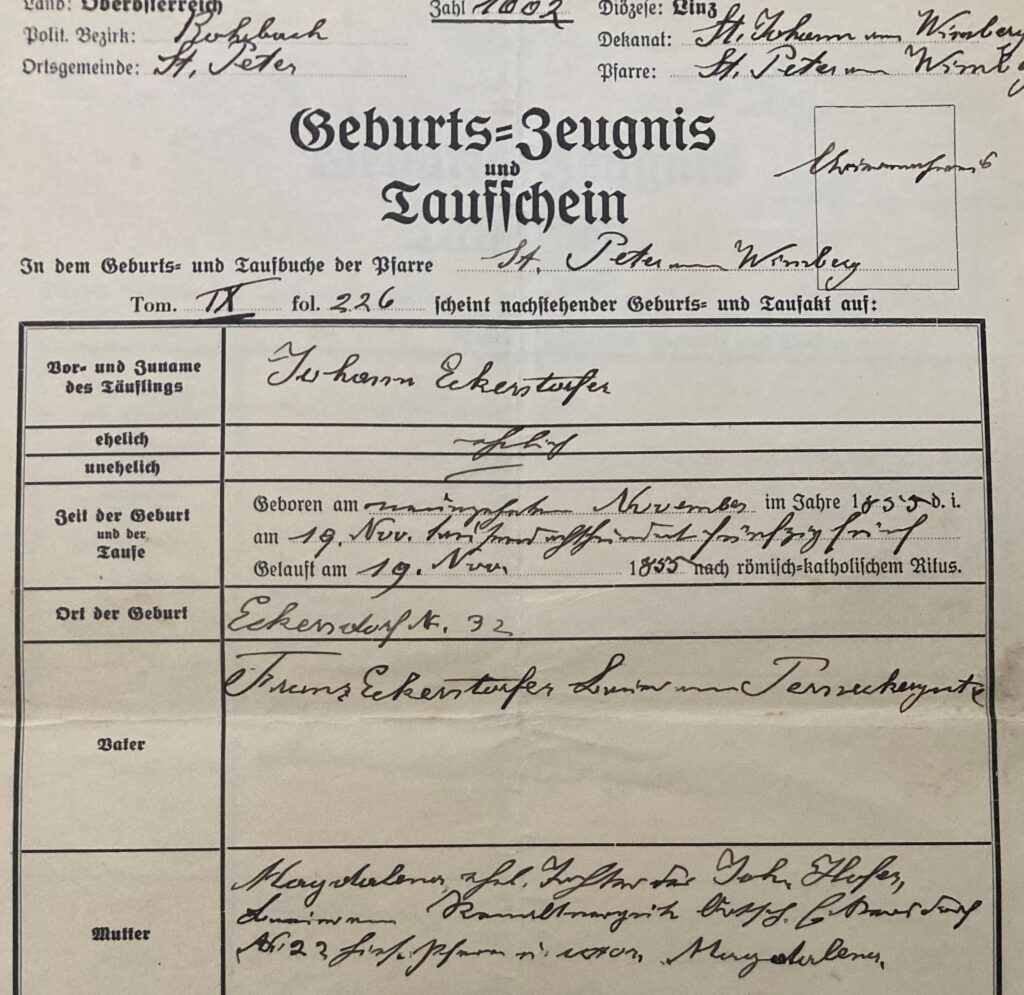 Land: Oberösterreich
Zahl 1002
Diözese: Linz
Polit. Bezirk: Rohrbach
Dekanat: St. Johann am Wimberg
Ortsgemeinde: St. Peter
Pfarre: St. Peter am Wimberg
Geburts=Zeugnis
und
Taufschein
In dem Geburts= und Taufbuche der Pfarre St. Peter am Wimberg
Tom. IX fol. 226 scheint nachstehender Geburts= und Taufakt auf:
Vor= und Zuname
des Täuflings
Johann Eckerstorfer
ehelich
ehelich
unehelich
Zeit der Geburt
und der
Taufe
Geboren am neunzehnten November im Jahre 1855 d. i.
am 19. Nov. tausendachthundert fünfzig fünf
Getauft am 19. Nov. 1855 nach römisch=katholischem Ritus.
Ort der Geburt
Eckersdorf Nr. 32
Vater
Franz Eckerstorfer Bauer am
Mutter
Magdalena, ehel. Tochter des Joh. Hofer,
Bauer am Ortsch. Eckersdorf
Nr. 22 hies. Pfarre u. Magdalena,